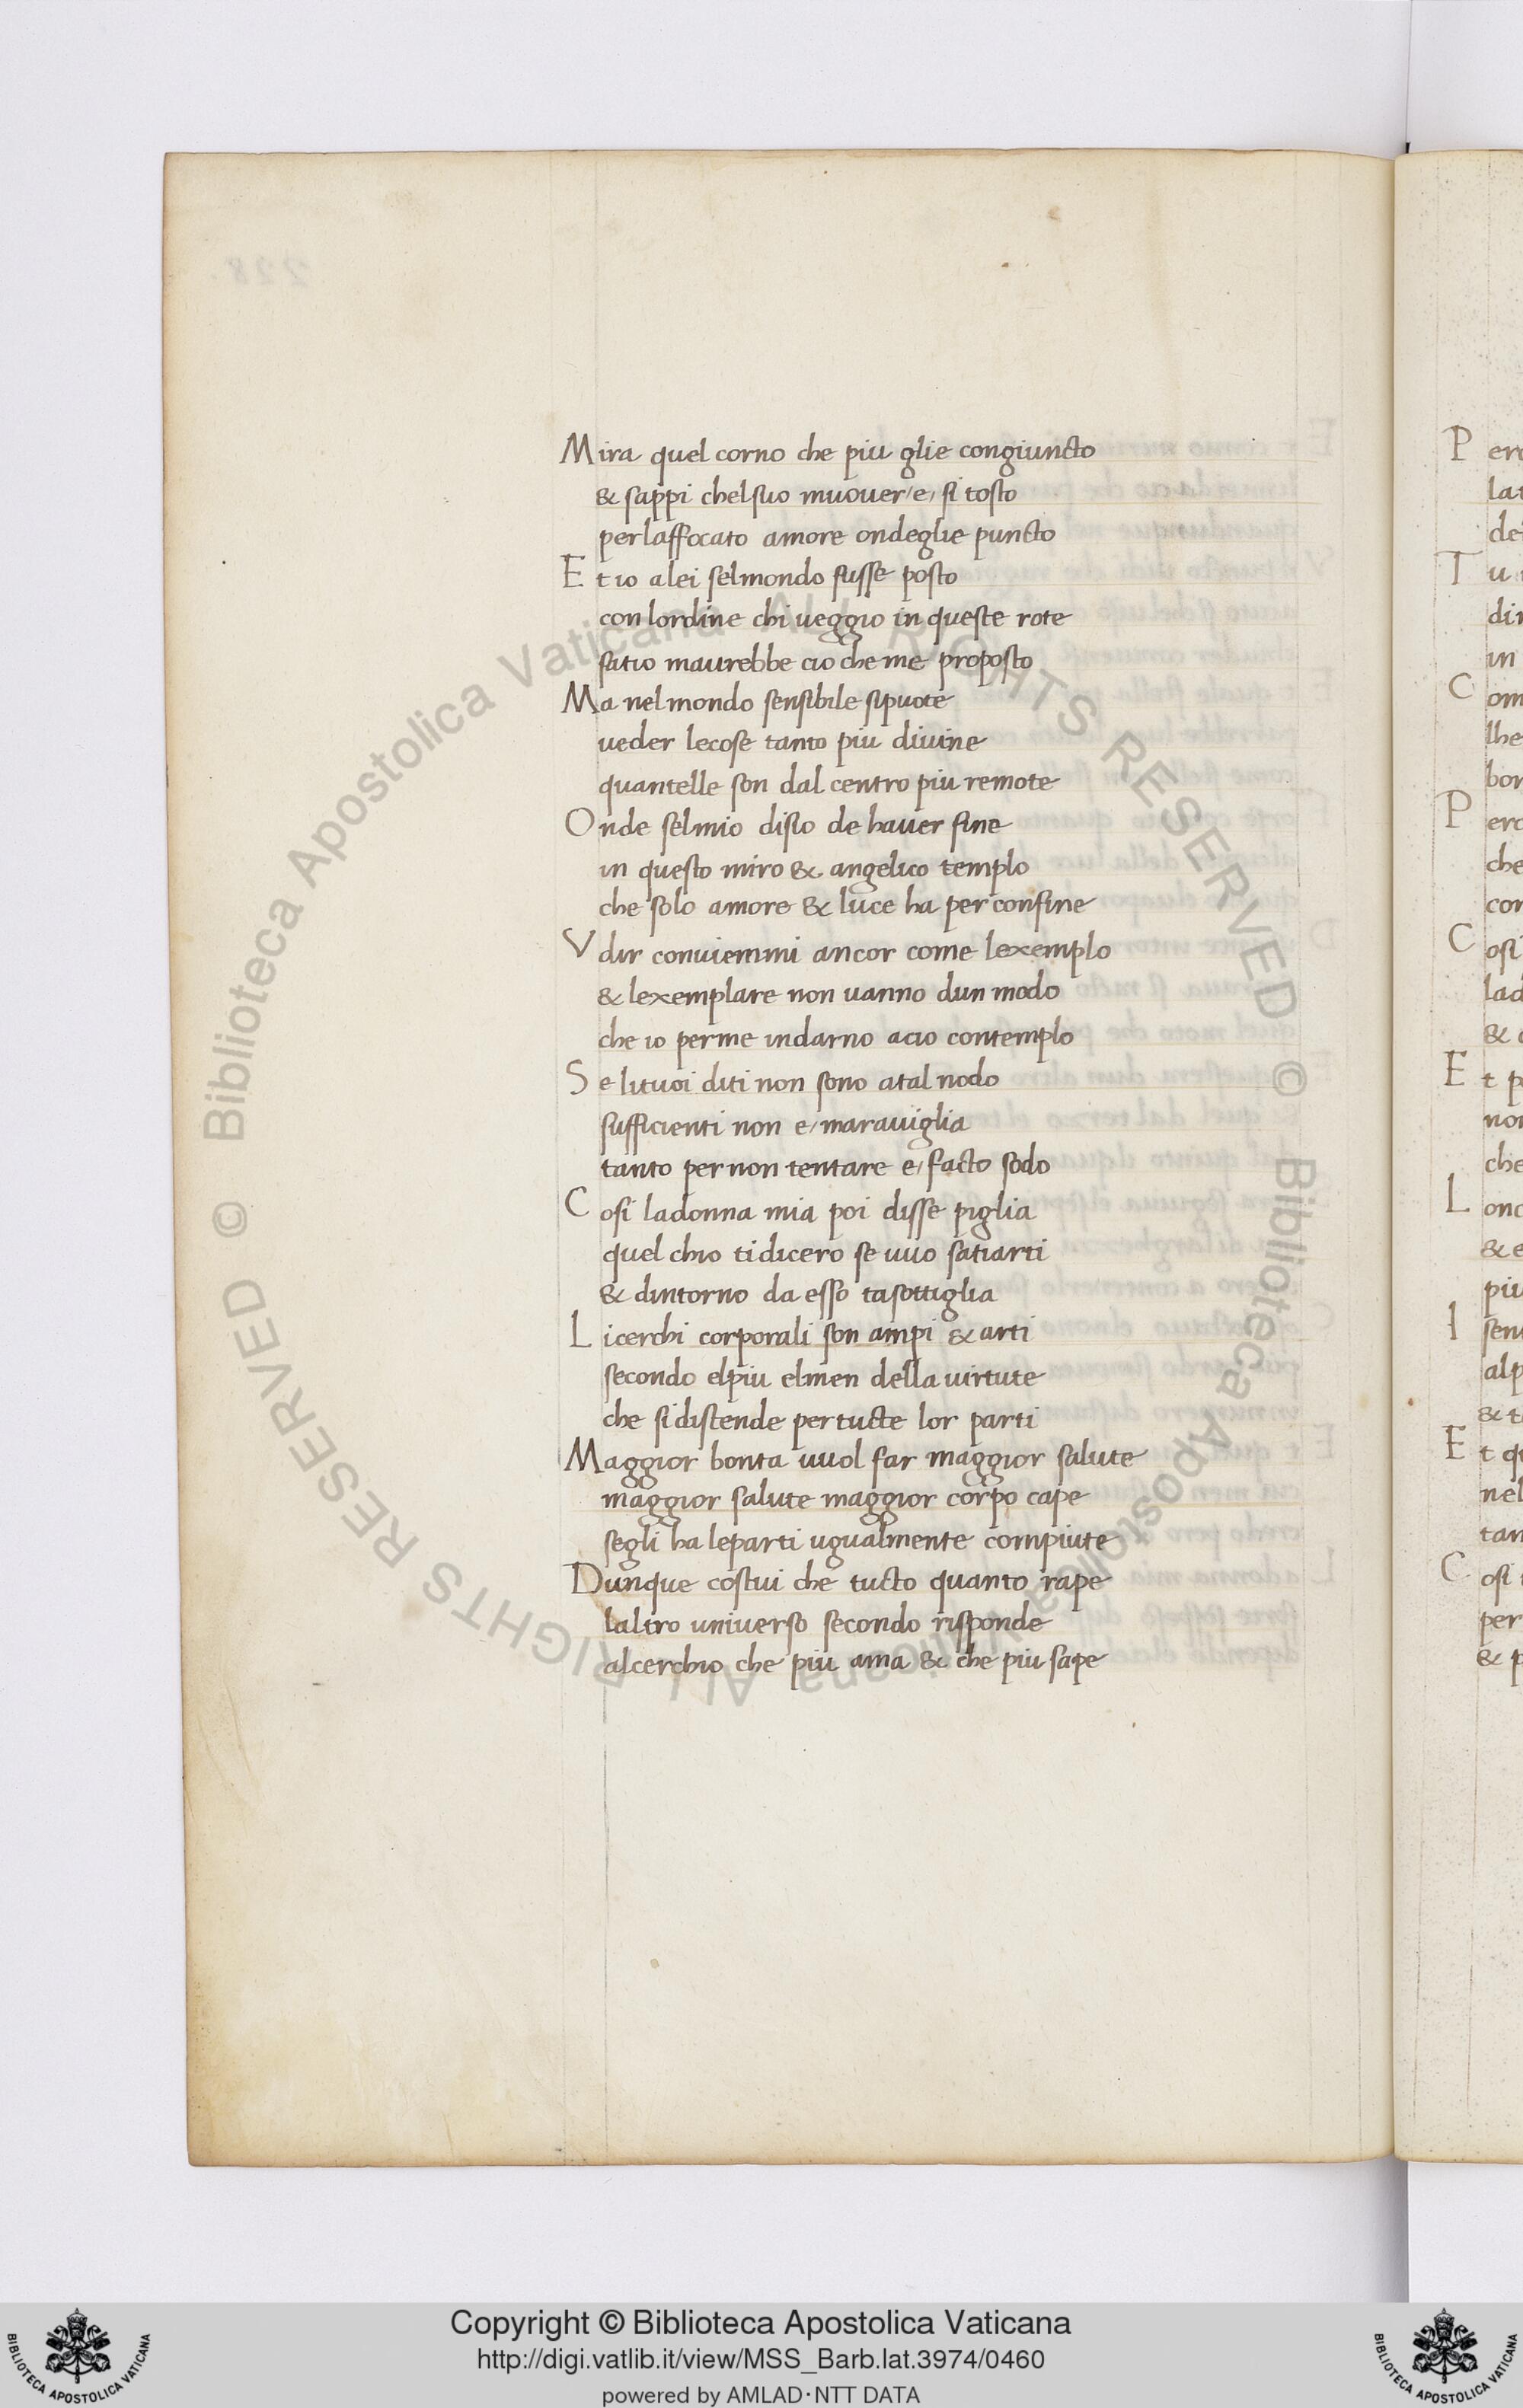 Mira quel corno che piu glie congiuncto
& sappi chelsuo muover / e / si tosto
perlaffocato amore ondeglie puncto
Et io alei selmondo fusse posto
con lordine chi veggio in queste rote
satio maurebbe cio che me proposto
Ma nel mondo sensibile sipuote
ueder lecose tanto piu divine
quantelle son dal centro piu remote
Onde selmio disio de hauer fine
in questo miro & angelico templo
che solo amore & luce ha per confine
Vdir conuiemmi ancor come lexemplo
& lexemplare non uanno dun modo
che io perme indarno acio contemplo
Se lituoi diti non sono atal nodo
sufficienti non e / marauiglia
tanto per non tentare e / facto sodo
Cosi ladonna mia poi disse piglia
quel chio tidicero se vuo satiarti
& dintorno da esso tasottiglia
Licerchi corporali son ampi & arti
secondo elpiu elmen della uirtute
che sidistende per tucte lor parti
Maggior bonta vuol far maggior salute
maggior salute maggior corpo cape
segli ha leparti ugualmente compiute
Dunque costui che tucto quanto rape
laltro universo secondo risponde
alcerchio che piu ama & che piu sape
P er
la
de
T u
di
in
C om
lhe
bon
P ero
che
con
C osi
lad
&
E t p
non
che
L
& e
piu
I sen
alp
& t
E t q
nel
tan
C osi
per
& p
228
© Biblioteca Apostolica Vaticana ALL RIGHTS RESERVED © Biblioteca Apostolica Vaticana ALL RIGHTS RESERVED
Copyright © Biblioteca Apostolica Vaticana
http://digi.vatlib.it/view/MSS_Barb.lat.3974/0460
powered by AMLAD·NTT DATA
BIBLIOTECA APOSTOLICA VATICANA
BIBLIOTECA APOSTOLICA VATICANA